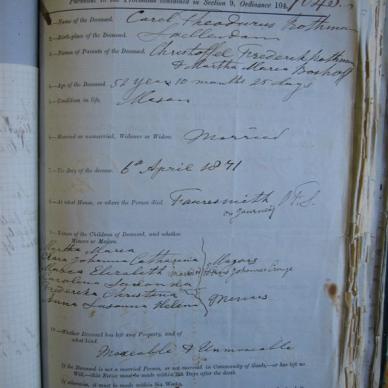 Pursuant to the Provisions contained in Section 9, Ordinance 104,
1.—Name of the Deceased. Carel Theodurus Rothman
2.—Birth-place of the Deceased. Swellendam
3.—Names of Parents of the Deceased. Christoffel Frederick Rothman
& Martha Maria Boshoff
4.—Age of the Deceased. 52 years 10 months 25 days
5.—Condition in life. Mason
6.—Married or unmarried, Widower or Widow. Married
7.—The Day of the decease. 6th April 1871
8.—At what House, or where the Person died. Fauresmith O F S
on journey
9.—Names of the Children of Deceased, and whether
Minors or Majors.
Martha Maria
Clara Johanna Catharina
Maria Elizabeth married Johannes
Majors
Carolina
Frederika Christina
Anna Susanna Helena
Minors
10.—Whether Deceased has left any Property, and of
what kind.
Moveable & Unmovable
If the Deceased is not a married Person, or not married in Community of Goods,—or has left no
Will,—this Notice must be made within 14 Days after the death.
If otherwise, it must be made within Six Weeks.